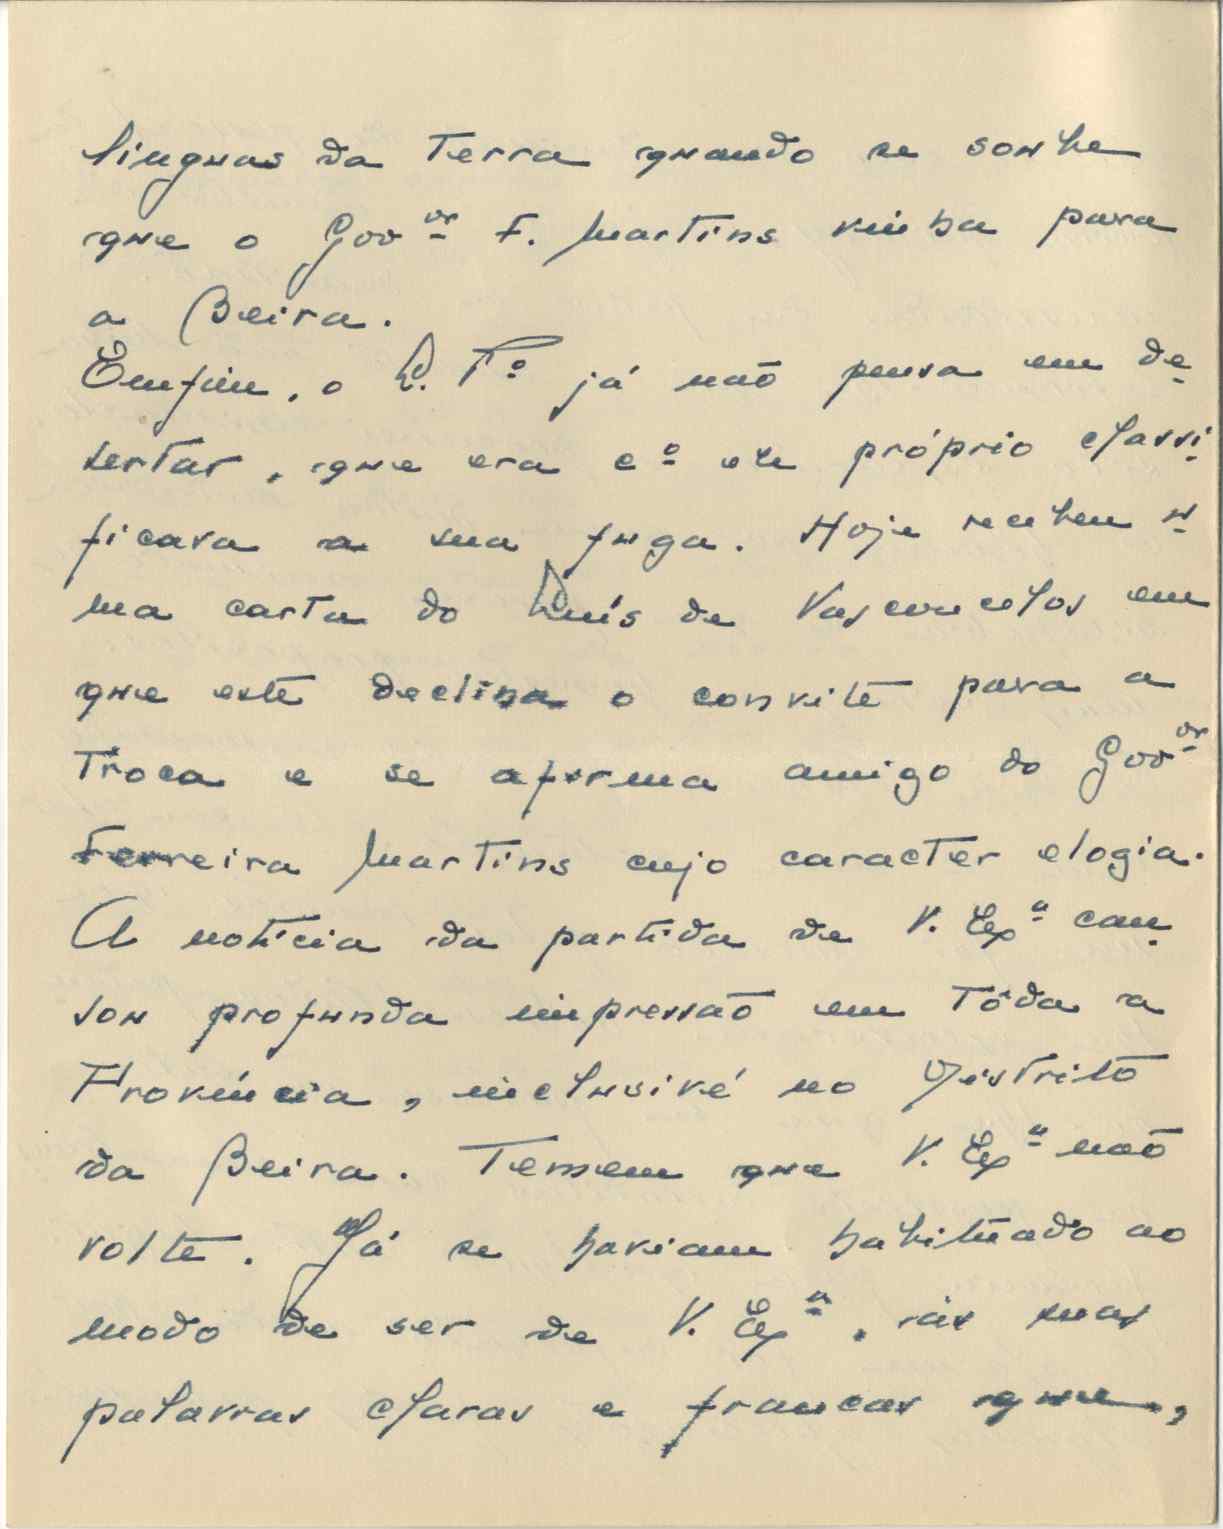 linguas da Terra quando se soube
que o Gov.or F. Martins vinha para
a Beira.
Emfim, o L. T.º já não pensa em de-
sertar, que era c.º ele próprio classi-
ficava a sua fuga. Hoje recebeu u-
ma carta do Luís de Vasconcelos em
que este declina o convite para a
Troca e se afirma amigo do Gov.or
Ferreira Martins cujo caracter elogia.
A notícia da partida de V. Ex.a cau-
sou profunda impressão em tôda a
Província, inclusivé no Distrito
da Beira. Temem que V. Ex.a não
volte. Já se haviam habituado ao
modo de ser de V. Ex.a, às suas
palavras claras e francas que,